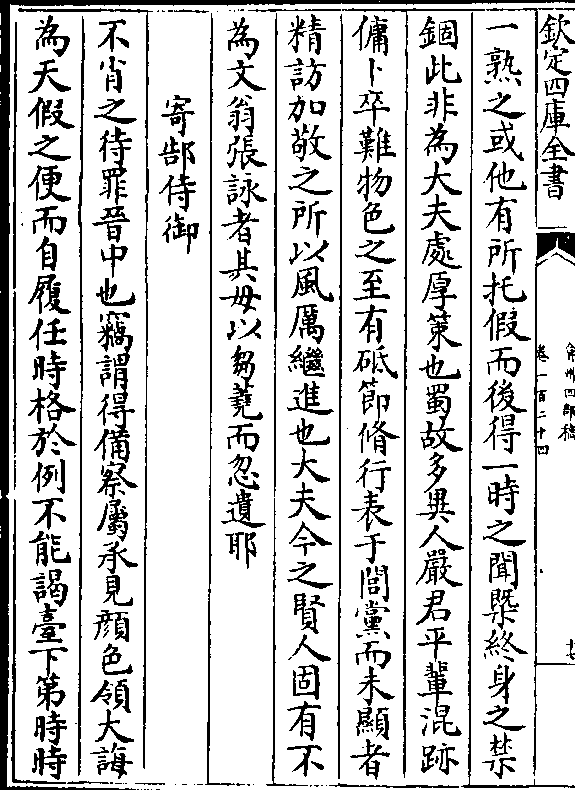 欽定四庫全書
弇州四部稿
卷一百二十四
一熟之或他有所托假而後得一時之聞槩終身之禁
錮此非為大夫處厚策也蜀故多異人嚴君平輩混跡
傭卜卒難物色之至有砥節脩行表于閭黨而未顯者
精訪加敬之所以風厲繼進也大夫今之賢人固有不
為文翁張詠者其毋以芻蕘而忽遺耶
寄郜侍御
不肖之待罪晉中也竊謂得備察屬承見顏色領大誨
為天假之便而自履任時格於例不能謁臺下第時時